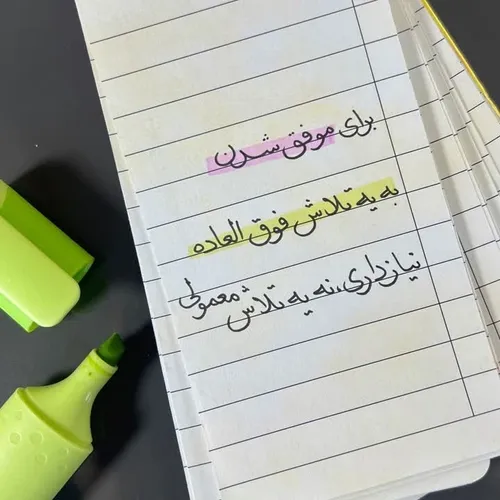 برای موفق شدن
به یه تلاش فوق العاده
نیاز داری، نه یه تلاش معمولی